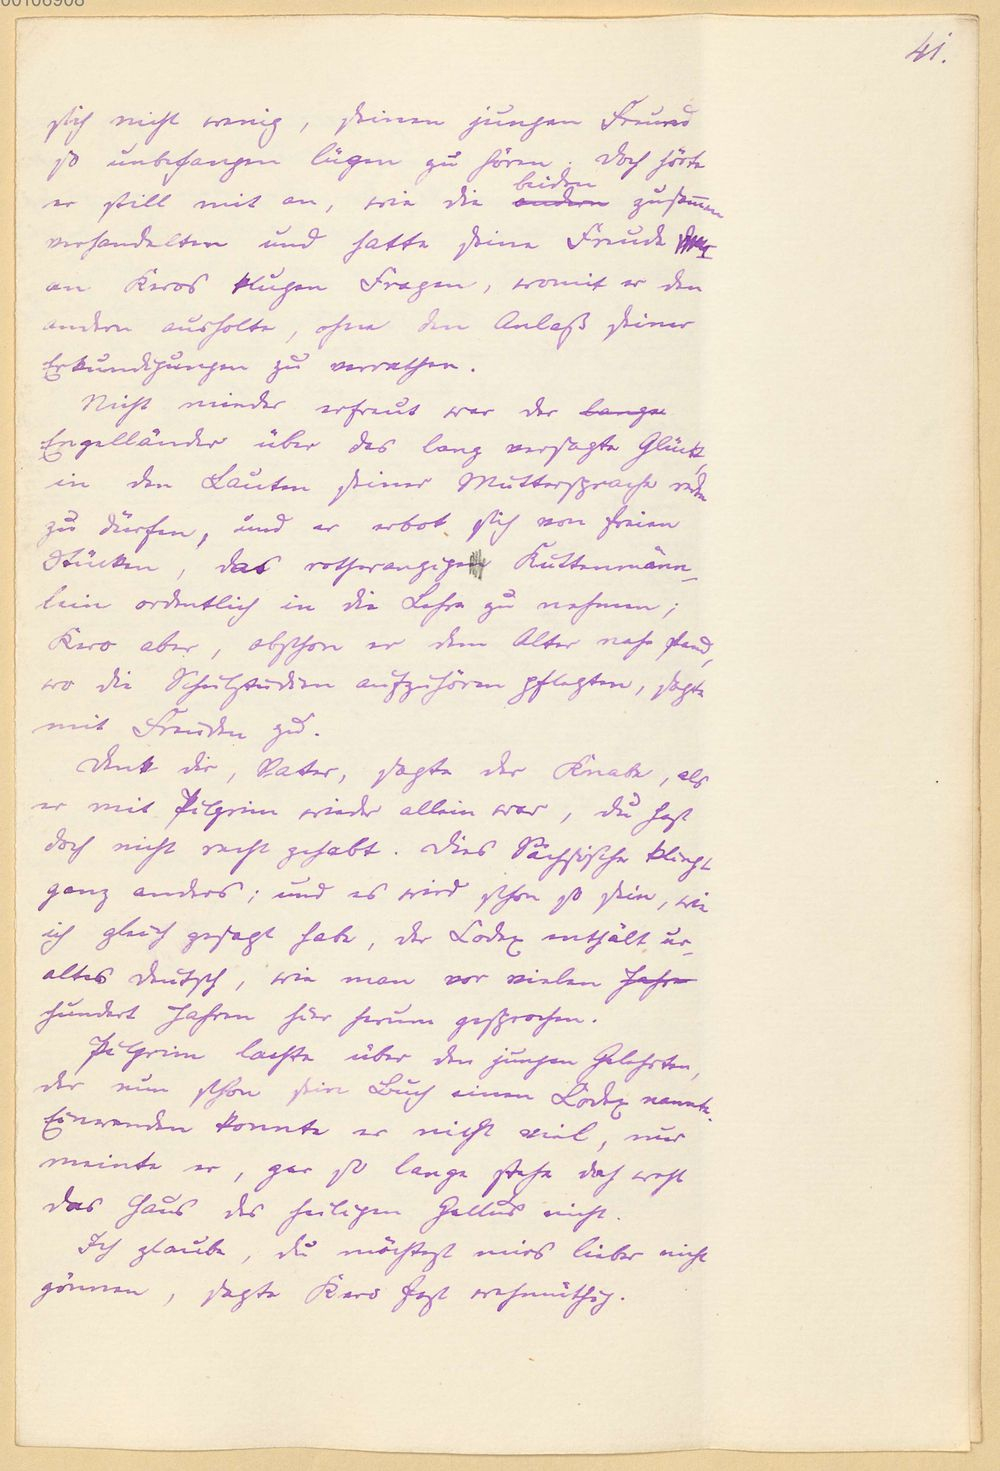 00106908
41.
sich nicht wenig, seinen jungen Freund
so unbefangen lügen zu hören. Doch hörte
er still mit an, wie die andern beiden zusammen
verhandelten und hatte seine Freude
an Keros klugen Fragen, womit er den
andern ausholte, ohne den Anlaß seiner
Erkundigungen zu verrathen.
Nicht minder erfreut war der lange
Engelländer über das lang versagte Glück,
in den Lauten seiner Muttersprache reden
zu dürfen, und er erbot sich von freien
Stücken, das rotherangige Kuttenmänn-
lein ordentlich in die Lehre zu nehmen;
Kero aber, obschon er dem Alter nahe stand,
wo die Schulstudien aufzuhören pflegten, sagte
mit Freuden zu.
Denk dir, Vater, sagte der Knabe, als
er mit Pilgrim wieder allein war, du hast
doch nicht recht gehabt. Dies Sächsische klingt
ganz anders; und es wird schon so sein, wie
ich gleich gesagt habe, der Codex enthält ur-
altes Deutsch, wie man vor vielen Jahr
hundert Jahren hier herum gesprochen.
Pilgrim lachte über den jungen Gelehrten,
der nun schon sein Buch einen Codex nannte.
Einwenden konnte er nicht viel, nur
meinte er, gar so lange stehe doch wohl
das Haus des heiligen Gallus nicht.
Ich glaube, du möchtest mirs lieber nicht
gönnen, sagte Kero fast wehmüthig.